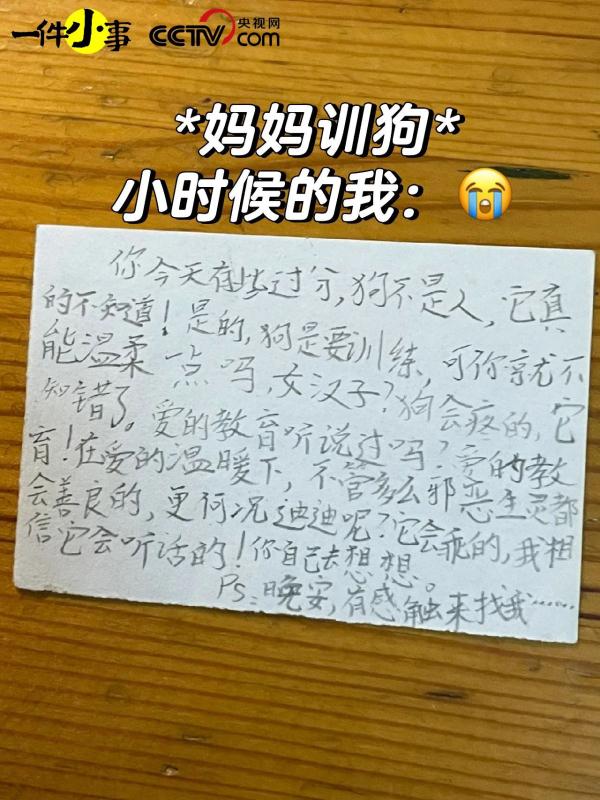 一件小事 CCTV央视网com
*妈妈训狗*
小时候的我：😭
你今天有些过分,狗不是人,它真
的不知道!是的,狗是要训练,可你就不
能温柔一点吗,女汉子?狗会疼的,它
知错了。爱的教育听说过吗?爱的教
育!在爱的温暖下,不管多么邪恶生灵都
会善良的,更何况迪迪呢?它会乖的,我相
信它会听话的!你自己去想想。
Ps:晚安,有感触来找我……